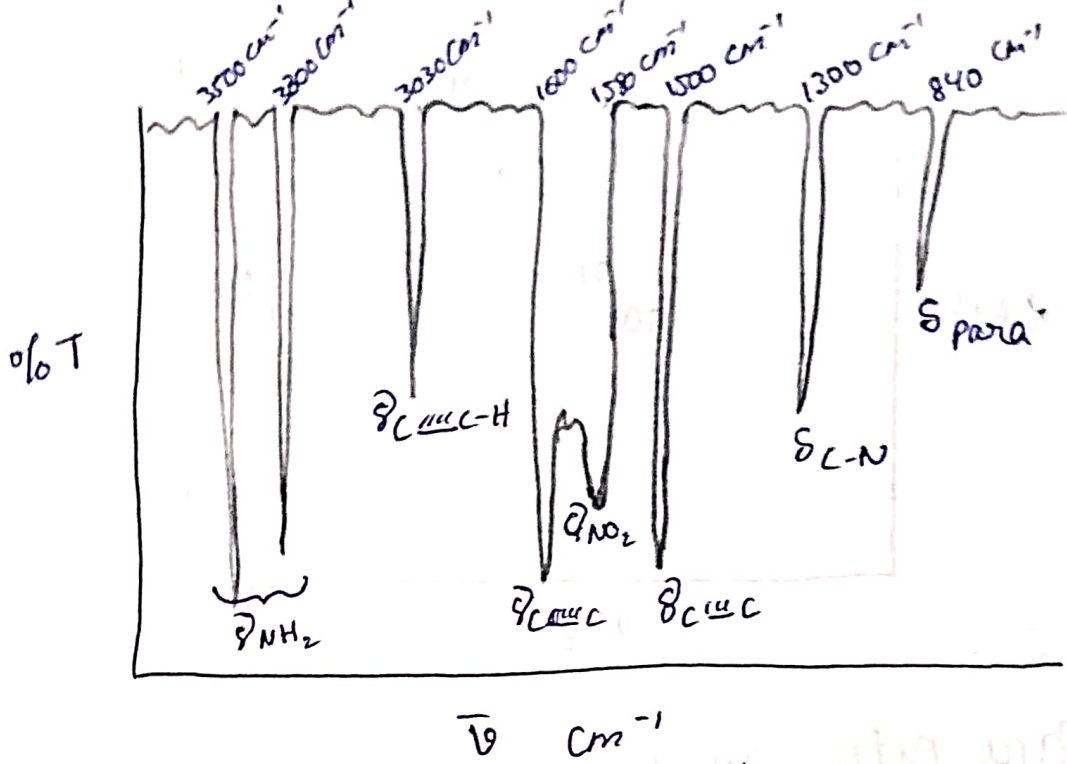 3500 cm⁻¹
3300 cm⁻¹
3030 cm⁻¹
1600 cm⁻¹
1580 cm⁻¹
1500 cm⁻¹
1300 cm⁻¹
840 cm⁻¹
% T
δ para
ϑ C⩧C-H
δ C-N
ϑ NO₂
ϑ C⩧C
ϑ C⩧C
ϑ NH₂
ῡ cm⁻¹